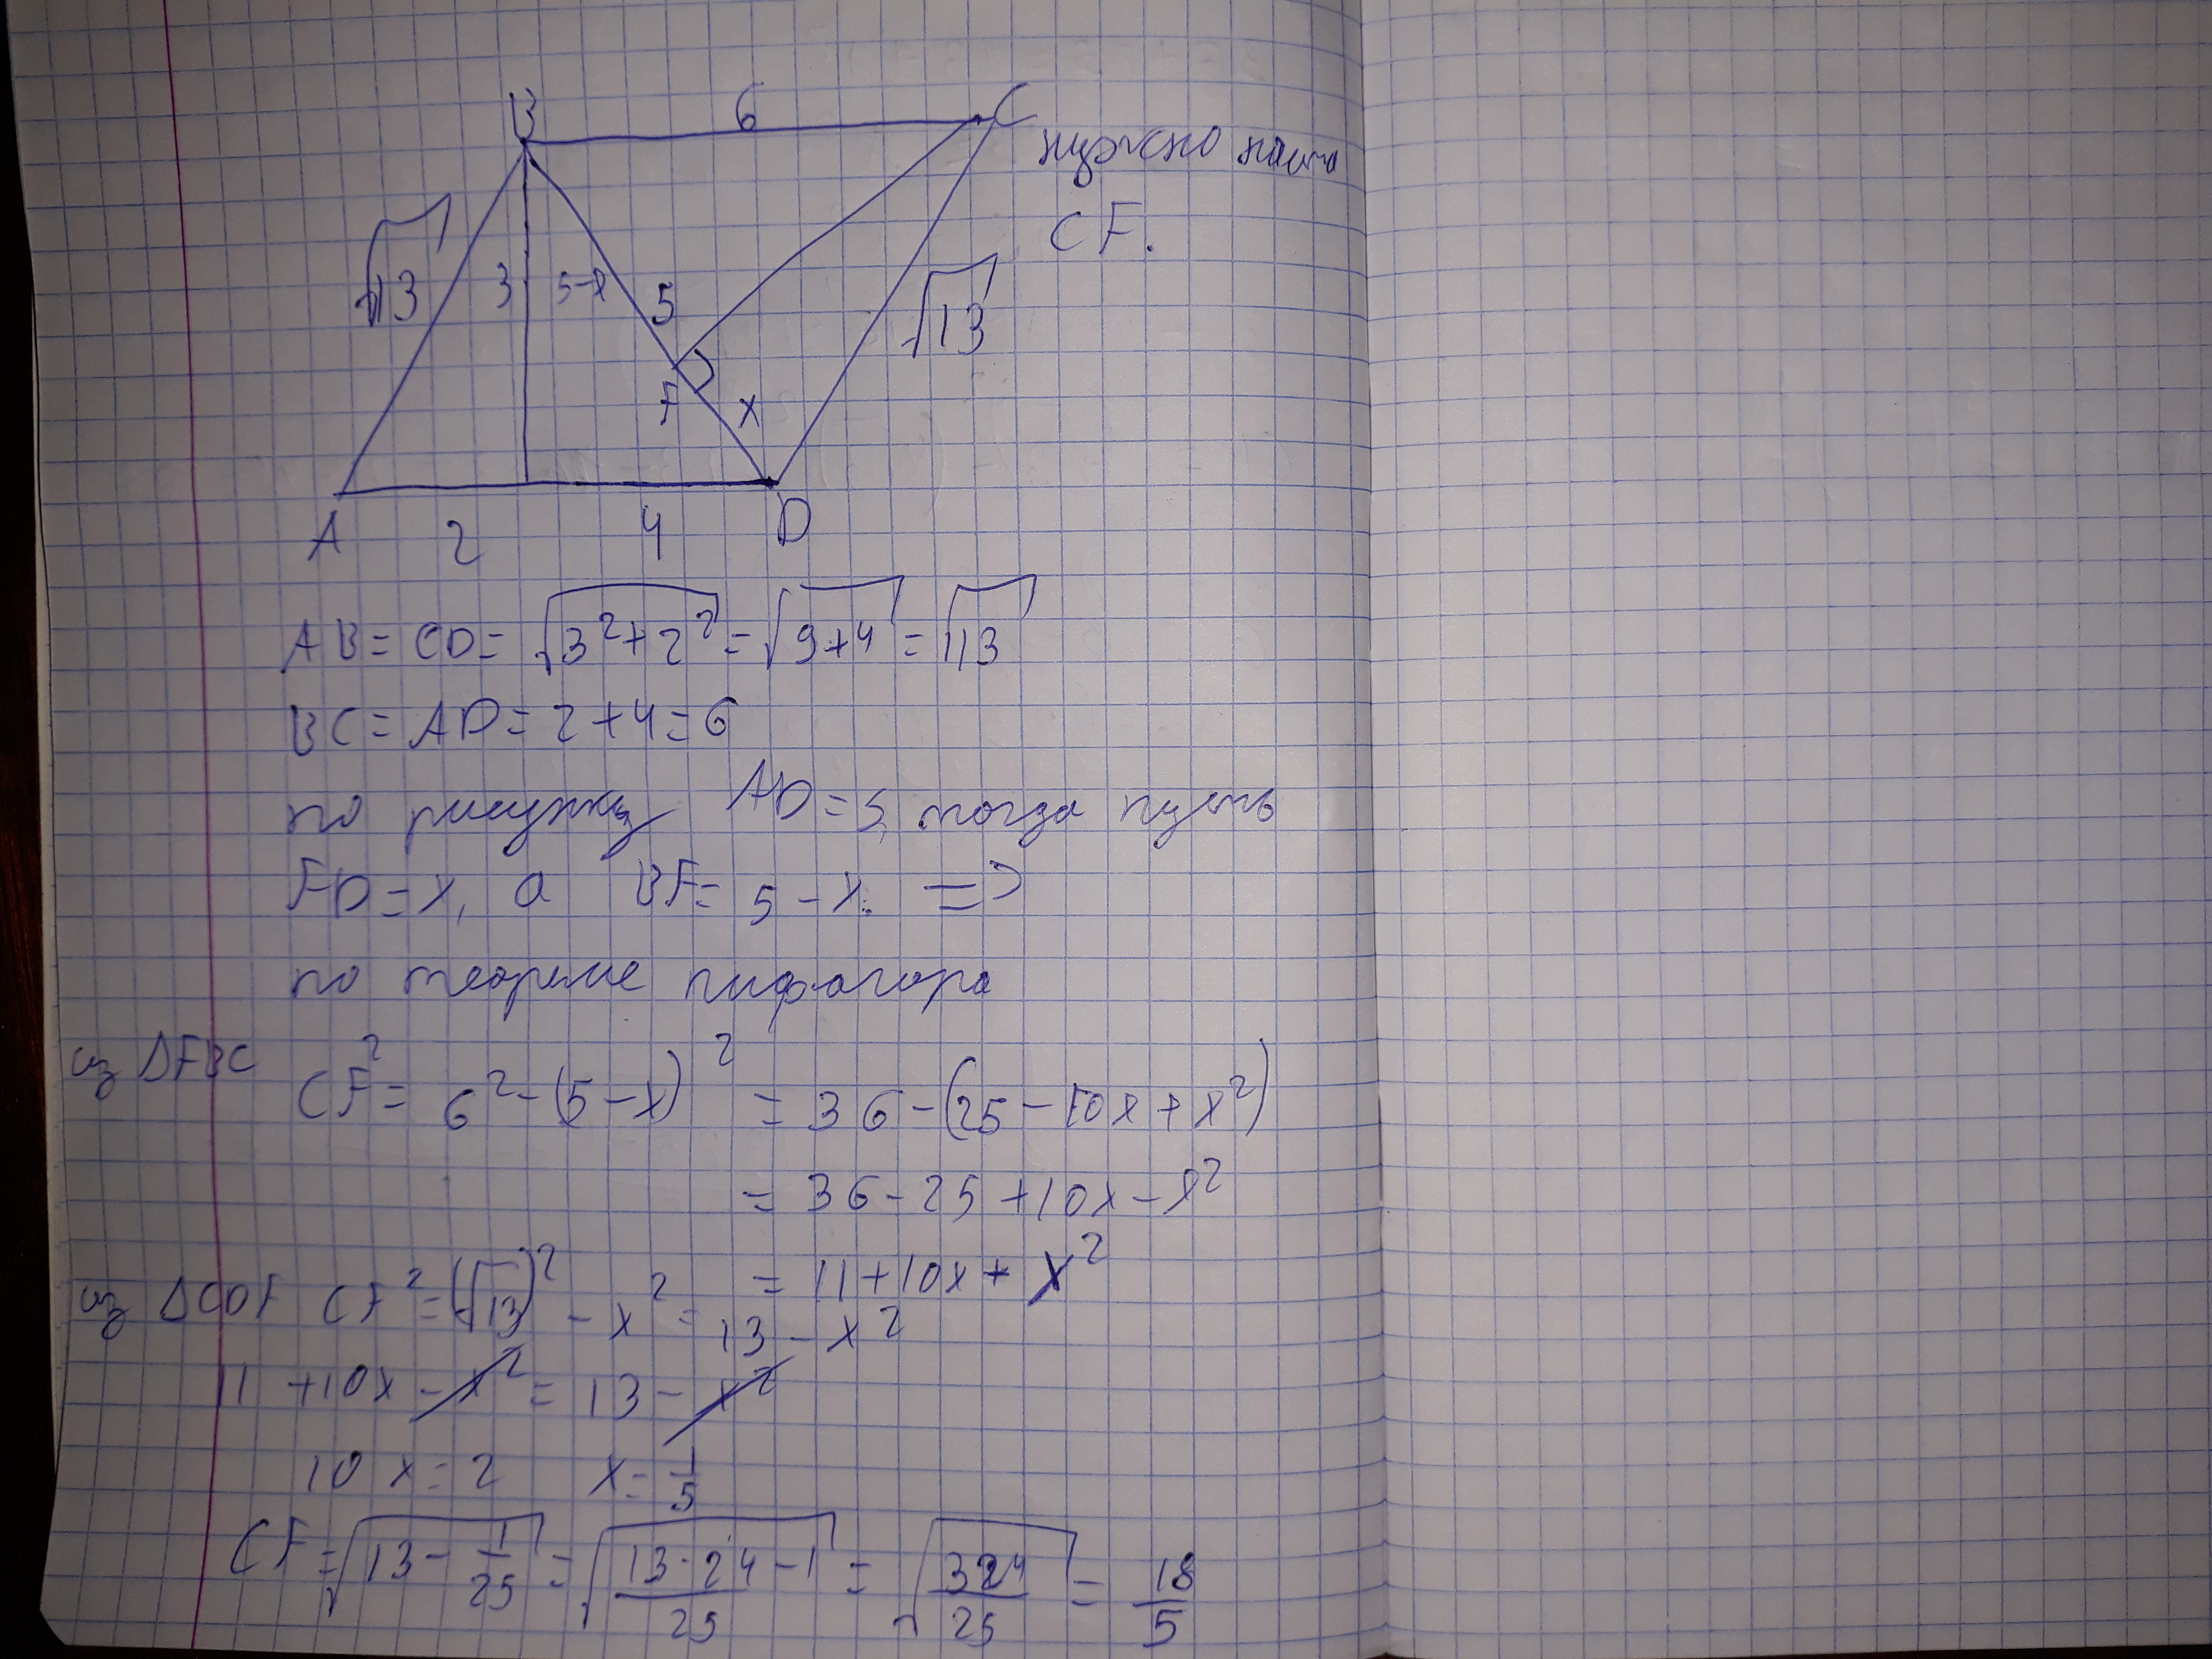 B 6 C
нужно найти
CF.
√13 3 5-x 5 √13
F x
A 2 4 D
AB = CD = √3²+2² = √9+4 = √13
BC = AD = 2+4=6
по рисунку AD=5, тогда пусть
FD=x, а BF= 5-x. =>
по теореме пифагора
из ΔFBC CF² = 6²-(5-x)² = 36-(25-10x+x²)
= 36-25+10x-x²
= 11+10x+x²
из ΔCDF CF² = (√13)² - x² = 13-x²
11+10x-x² = 13-x²
10x=2 x=1/5
CF=√13-1/25 = √13·24-1/25 = √324/25 = 18/5